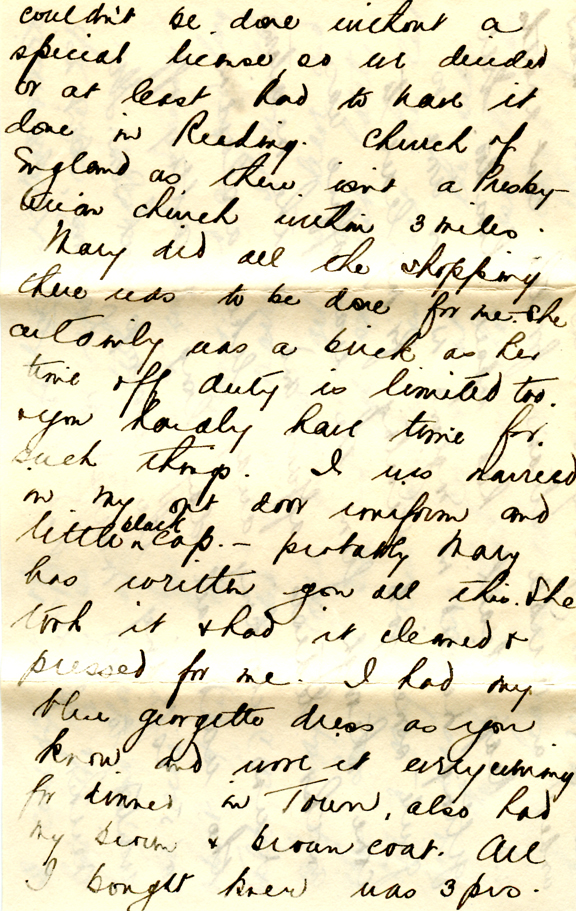 couldn't be done without a
special license, so we decided
or at least had to have it
done in Reading. Church of
England as there isn't a Presby-
terian church within 3 miles.
Mary did all the shopping
there was to be done for me. She
certainly was a brick as her
time off duty is limited too.
& you hardly have time for.
such things. I was married
in my out door uniform and
little black cap. - probably Mary
has written you all this. She
took it & had it cleaned &
pressed for me. I had my
blue georgette dress as you
know and wore it every evening
for dinner in Town, also had
my brown & brown coat. All
I bought knew was 3 prs.